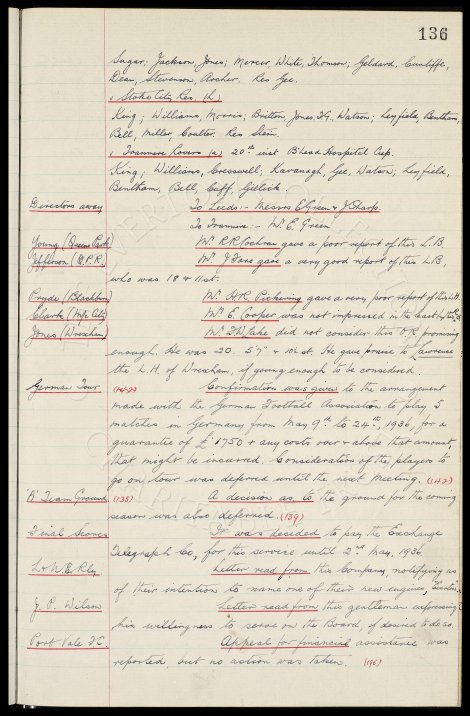 136
Sagar; Jackson, Jones; Mercer, White, Thomson; Geldard, Cunliffe,
Dean, Stevenson, Archer. Res Gee.
v Stoke City Res. (h)
King; Williams, Morris; Britton, Jones T.G. Watson; Leyfield, Bentham,
Bell, Miller, Coulter. Res Stein.
v Tranmere Rovers (a) 20th inst B'head Hospital Cup.
King; Williams, Cresswell, Kavanagh, Gee, Watson; Leyfield,
Bentham, Bell, Cuff, Gillick
Directors away To Leeds:- Messrs E. Green & J Sharp.
To Tranmere:- Mr. E. Green
Young (Queens Park) Mr. R.R. Cochran gave a poor report of this L.B.
Jefferson (Q.P.R.) Mr. J Fare gave a very good report of this L.B,
who was 18 & 11 st.
Pryde (Blackburn) Mr. H.R. Pickering gave a very poor report of this L.H.
Clark (M/c City) Mr. E. Cooper was not impressed in the least by this
Jones (Wrexham) Mr. did not consider this O.R. promising
enough. He was 20. 5'7" & 10½ st. He gave praise to Lawrence
the L.H. of Wrexham, if young enough to be considered.
German Tour (142) Confirmation was given to the arrangement
made with the German Football Association to play 5
matches in Germany from May 9th to 24th, 1936, for a
guarantee of £1750 & any costs over & above that amount,
that might be incurred. Consideration of the players to
go on tour was deferred until the next Meeting. (142)
"A" Team Ground (135) A decision as to the ground for the coming
season was also deferred. (139)
Final Scores It was decided to pay the Exchange
Telegraph Co, for this service until 2nd May, 1936.
L & N.E. Rly Letter read from this Company, notifying us
of their intention to name one of their new engines, "Everton".
J. P. Wilson Letter read from this gentleman expressing
his willingness to serve on the Board, if desired to do so.
Port Vale F.C. Appeal for financial assistance was
reported but no action was taken. (196)